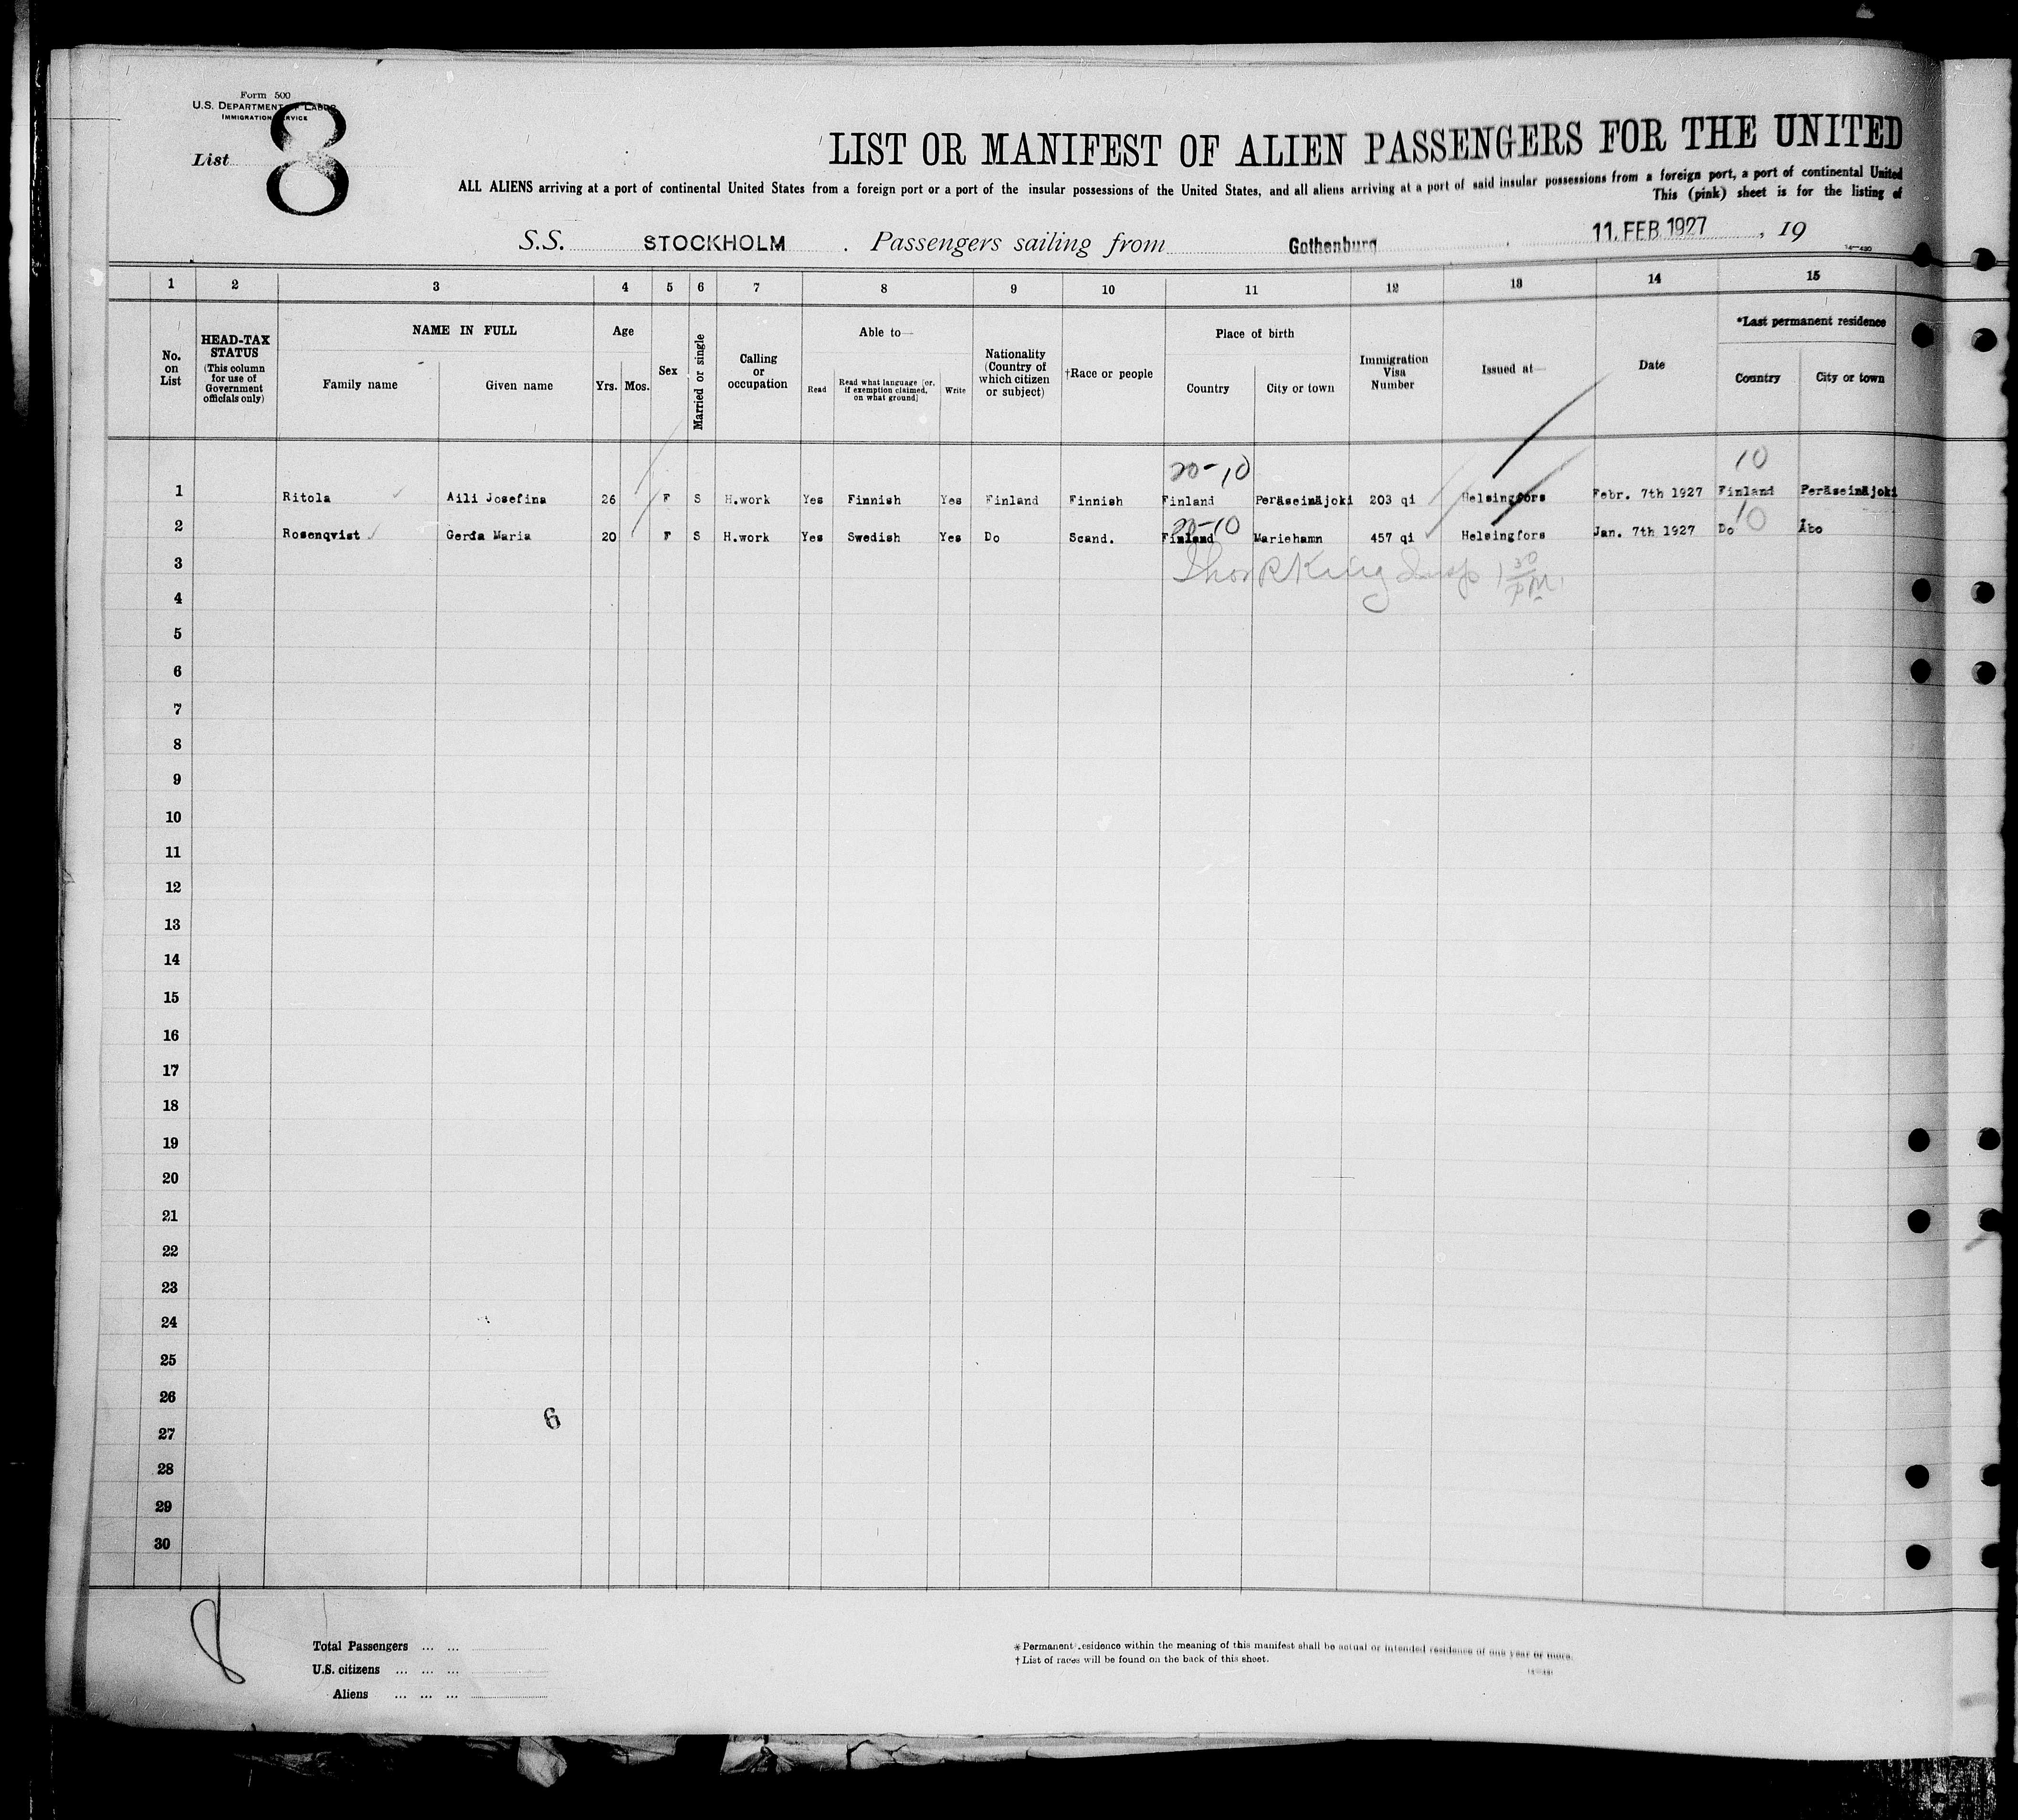 Form 500
U.S. DEPARTMENT OF LABOR
IMMIGRATION SERVICE
List 8
LIST OR MANIFEST OF ALIEN PASSENGERS FOR THE UNITED
ALL ALIENS arriving at a port of continental United States from a foreign port or a port of the insular possessions of the United States, and all aliens arriving at a port of said insular possessions from a foreign port, a port of continental United
This (pink) sheet is for the listing of
S.S. STOCKHOLM . Passengers sailing from Gothenburg 11. FEB 1927, 19
1 2 3 4 5 6 7 8 9 10 11 12 13 14 15
No. on List
HEAD-TAX STATUS (This column for use of Government officials only)
NAME IN FULL
Family name Given name
Age
Yrs. Mos.
Sex
Married or single
Calling or occupation
Able to—
Read Read what language [or, if exemption claimed, on what ground] Write
Nationality (Country of which citizen or subject)
†Race or people
Place of birth
Country City or town
Immigration Visa Number
Issued at—
Date
*Last permanent residence
Country City or town
20-10 10
1 Ritola Aili Josefina 26 F S H.work Yes Finnish Yes Finland Finnish Finland Peräseinäjoki 203 qi Helsingfors Febr. 7th 1927 Finland Peräseinäjoki
20-10 10
2 Rosenqvist Gerda Maria 20 F S H.work Yes Swedish Yes Do Scand. Finland Mariehamn 457 qi Helsingfors Jan. 7th 1927 Do Åbo
3 King Insp 1 30 PM
4
5
6
7
8
9
10
11
12
13
14
15
16
17
18
19
20
21
22
23
24
25
26
6
27
28
29
30
8
Total Passengers ... ...
U.S. citizens ... ... ...
Aliens ... ... ...
* Permanent residence within the meaning of this manifest shall be actual or intended residence of one year or more.
† List of races will be found on the back of this sheet.